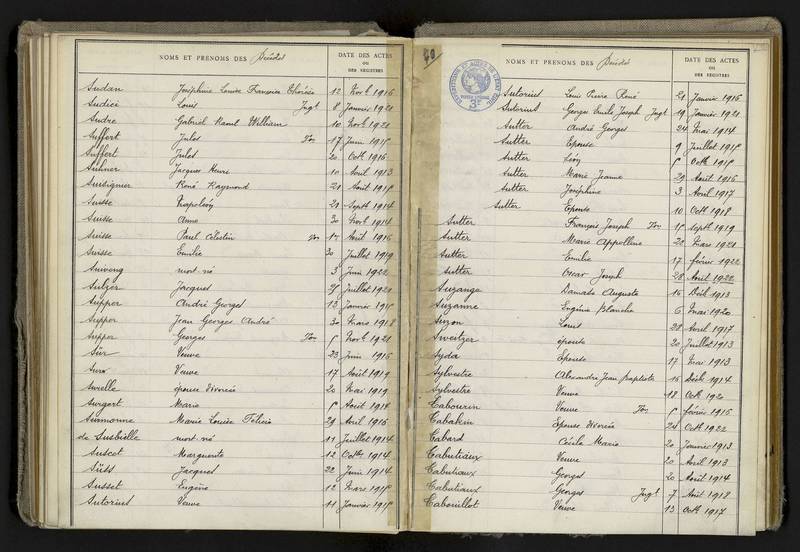 NOMS ET PRENOMS DES Décédés
DATE DES ACTES
OU
DES REGISTRES
Sudan Joséphine Louise Françoise Thérèse 12 Novb 1916
Sudici Louis Jugt 8 Janvier 1921
Sudre Gabriel Raoul William 10 Novb 1921
Suffert Jules Ton 17 Juin 191
Suffert Jules 20 Octb 1916
Suhner Jacques Henri 10 Avril 1913
Suisse Napoléon 21 Septb 1914
Suisse Anne 30 Novb 1914
Suisse Paul Célestin Août 1916
Suisse Emilie 30 Juillet 1919
mort-né 3 Juin 1922
Sulzer Jacques Juillet 1921
Supper André Georges 13 Janvier 191
Supper Jean Georges André 30 Mars 1918
Supper Georges Ton Novb 1921
Sür Veuve 23 Juin 1916
Veuve 17 Août 1919
Surelle épouse divorcée 20 Mai 1919
Surgert Marie Août 1914
Surmonne Marie Louise Félicie 29 Avril 1916
de Susbielle mort-né 11 Juillet 1914
Suscot Marguerite 12 Octb 1914
Süss Jacques 22 Juin 1914
Susset Eugène 12 Mars 191
Sutorius Veuve 11 Janvier 191
70
NOMS ET PRENOMS DES Décédés
DATE DES ACTES
OU
DES REGISTRES
Sutorius Louis Pierre René 21 Janvier 1916
Sutorius Georges Emile Joseph Jugt 19 Janvier 1921
Sutter André Georges 24 Mai 1914
Sutter Epouse 9 Juillet 191
Sutter Léon Octb 191
Sutter Marie Jeanne 29 Août 1916
Sutter Joséphine 3 Avril 1917
Sutter Epouse 10 Octb 1918
Sutter François Joseph Ton Septb 1919
Sutter Marie Appolline 22 Mars 1921
Sutter Emilie 17 février 1922
Sutter Oscar Joseph 28 Août 1922
Suzanga Damaso Auguste 16 Déb 1913
Suzanne Eugénie Blanche 6 Mai 1920
Suzon Louis 28 Avril 1917
Sweitzer épouse 20 Juillet 1913
Syda Epouse 17 Mai 1913
Sylvestre Alexandre Jean Baptiste 16 Déb 1914
Sylvestre Veuve 18 Octb 1920
Tabourin Veuve Ton février 1916
Tabakin Epouse divorcée 24 Octb 1922
Tabard Cécile Marie 20 Janvier 1913
Tabutiaux Veuve 20 Avril 1913
Tabutiaux Georges 20 Août 1914
Tabutiaux Georges Jugt 7 Août 1918
Tabouillot Veuve 13 Octb 1917